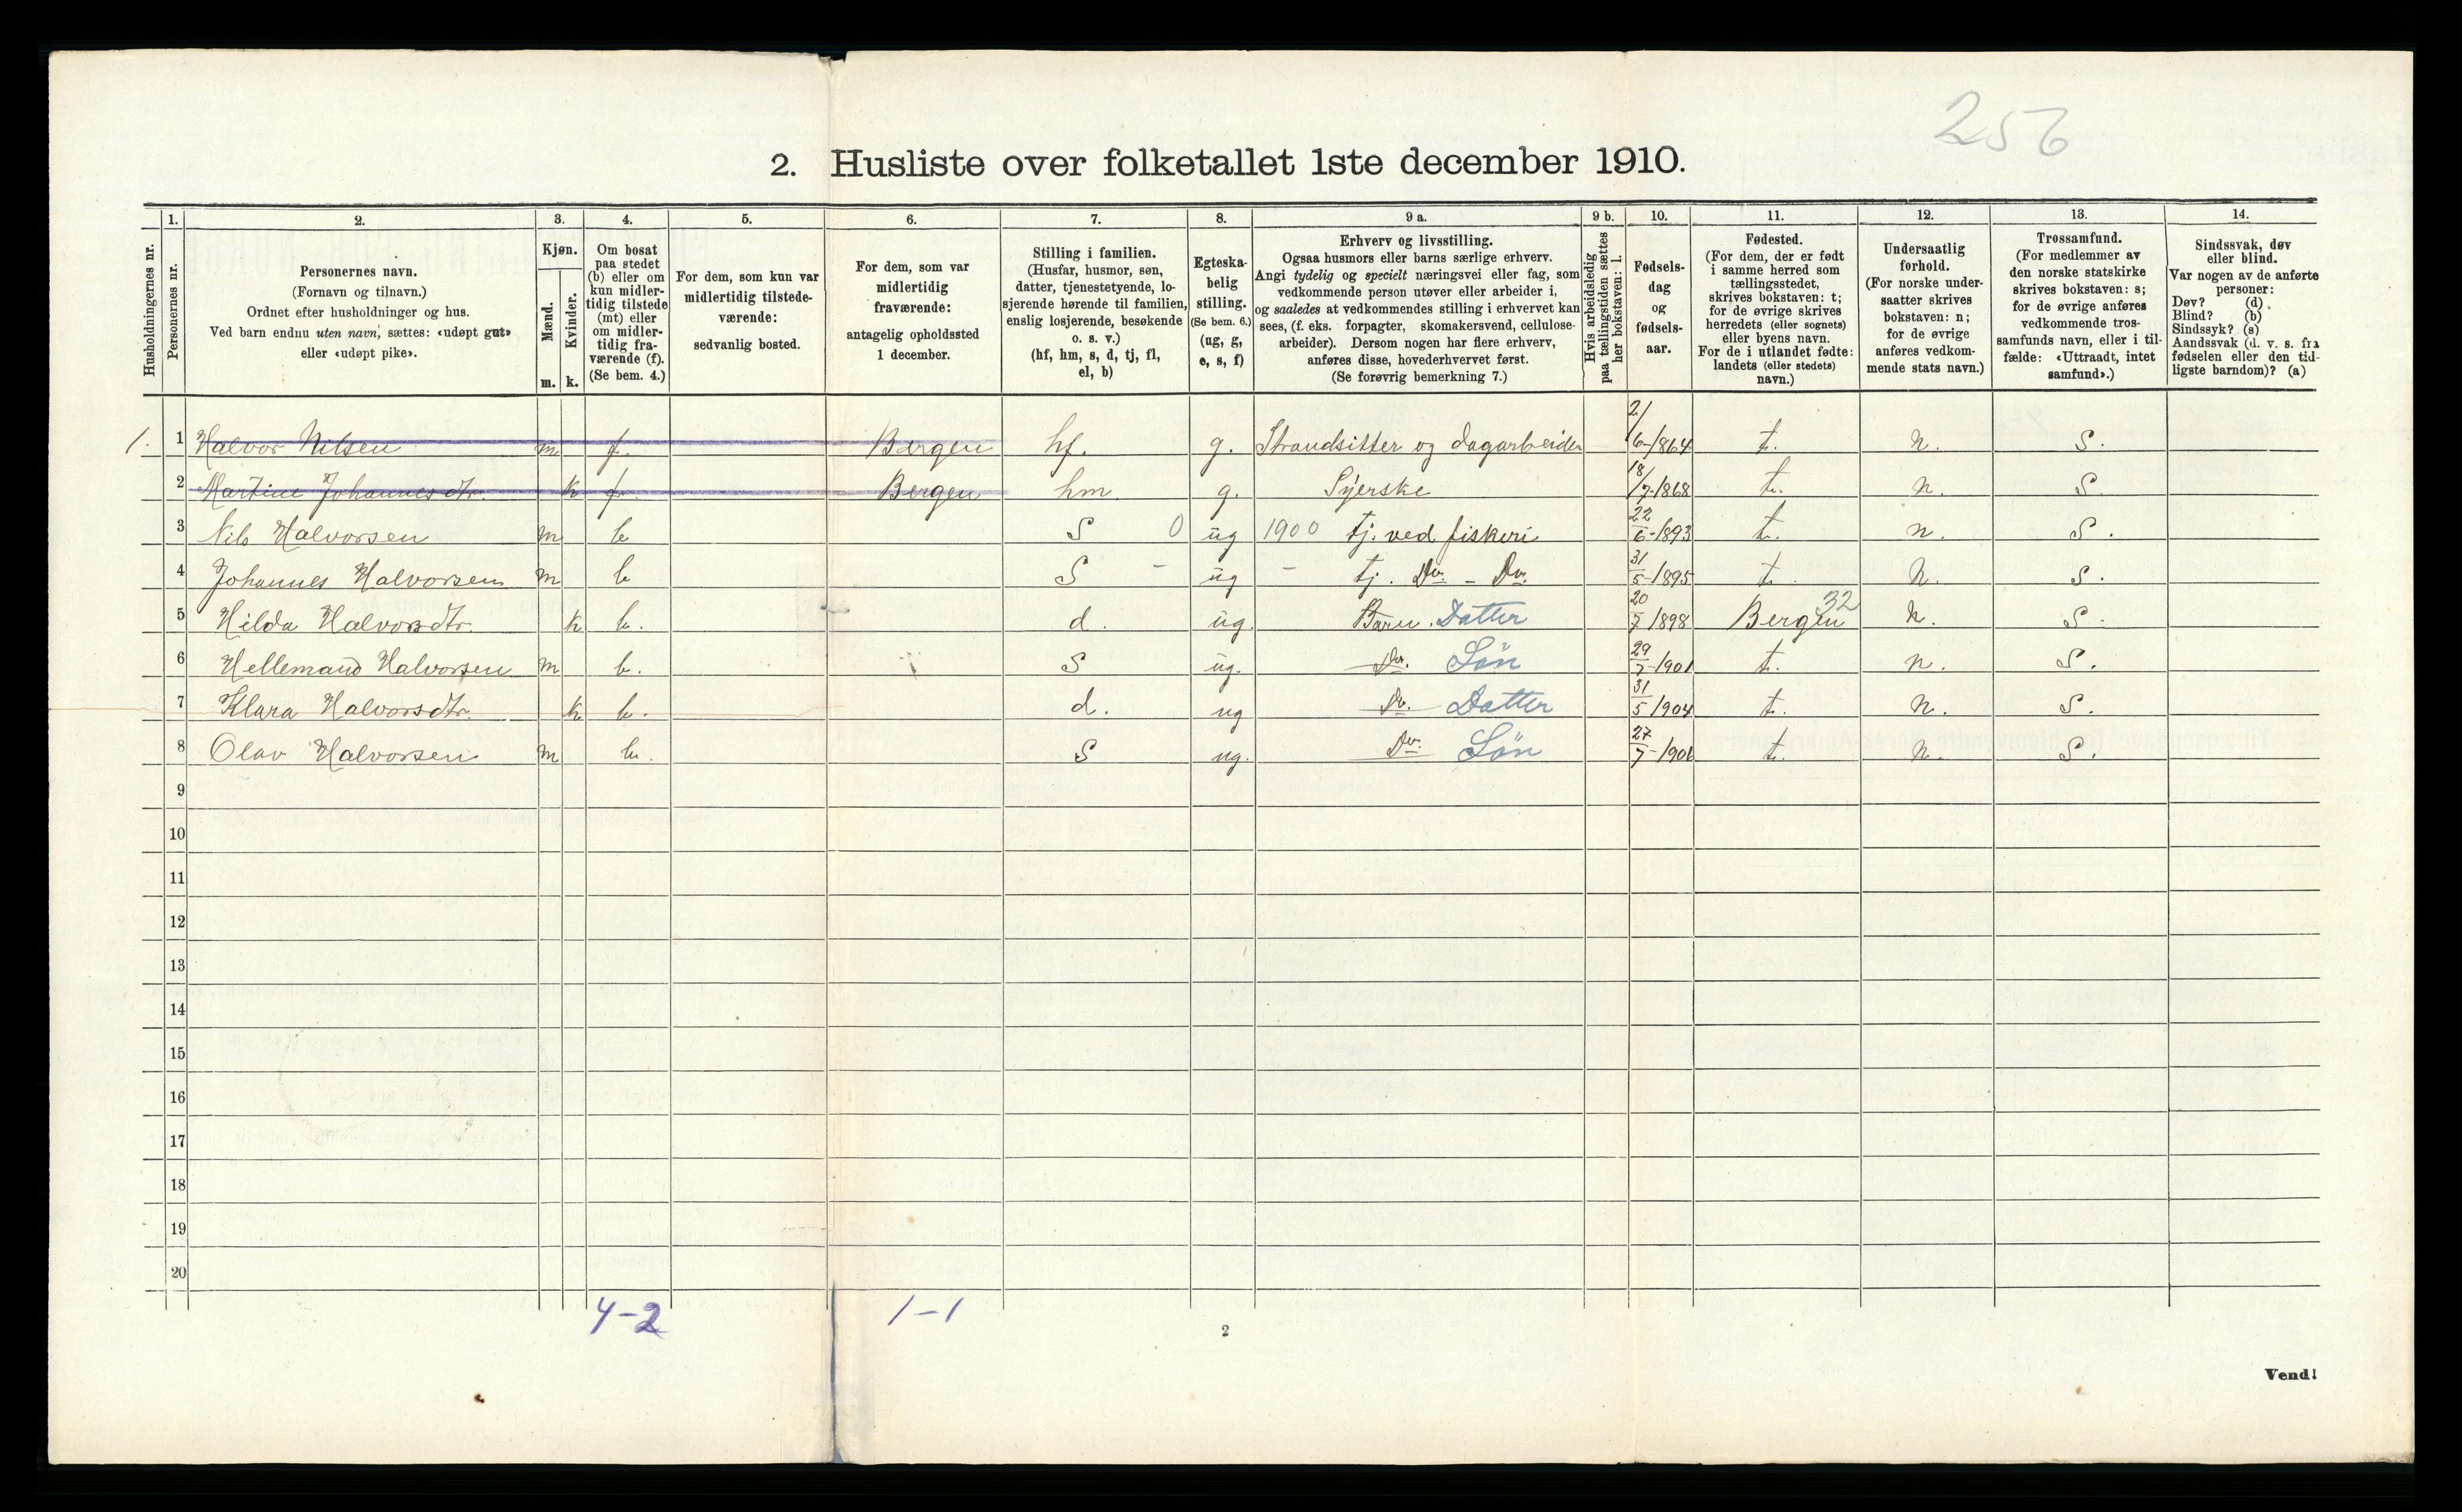 256
2. Husliste over folketallet 1ste december 1910.
Husholdningernes nr.
1.
Personernes nr.
2.
Personernes navn.
(Fornavn og tilnavn.)
Ordnet efter husholdninger og hus.
Ved barn endnu uten navn, sættes: «udøpt gut»
eller «udøpt pike».
3.
Kjøn.
Mænd.
Kvinder.
m. k.
4.
Om bosat
paa stedet
(b) eller om
kun midler-
tidig tilstede
(mt) eller
om midler-
tidig fra-
værende (f).
(Se bem. 4.)
5.
For dem, som kun var
midlertidig tilstede-
værende:
sedvanlig bosted.
6.
For dem, som var
midlertidig
fraværende:
antagelig opholdssted
1 december.
7.
Stilling i familien.
(Husfar, husmor, søn,
datter, tjenestetyende, lo-
sjerende hørende til familien,
enslig losjerende, besøkende
o. s. v.)
(hf, hm, s, d, tj, fl,
el, b)
8.
Egteska-
belig
stilling.
(Se bem. 6.)
(ug, g,
e, s, f)
9 a.
Erhverv og livsstilling.
Ogsaa husmors eller barns særlige erhverv.
Angi tydelig og specielt næringsvei eller fag, som
vedkommende person utøver eller arbeider i,
og saaledes at vedkommendes stilling i erhvervet kan
sees, (f. eks. forpagter, skomakersvend, cellulose-
arbeider). Dersom nogen har flere erhverv,
anføres disse, hovederhvervet først.
(Se forøvrig bemerkning 7.)
9 b.
Hvis arbeidsledig
paa tællingstiden sættes
her bokstaven: l.
10.
Fødsels-
dag
og
fødsels-
aar.
11.
Fødested.
(For dem, der er født
i samme herred som
tællingsstedet,
skrives bokstaven: t;
for de øvrige skrives
herredets (eller sognets)
eller byens navn.
For de i utlandet fødte:
landets (eller stedets)
navn.)
12.
Undersaatlig
forhold.
(For norske under-
saatter skrives
bokstaven: n;
for de øvrige
anføres vedkom-
mende stats navn.)
13.
Trossamfund.
(For medlemmer av
den norske statskirke
skrives bokstaven: s;
for de øvrige anføres
vedkommende tros-
samfunds navn, eller i til-
fælde: «Uttraadt, intet
samfund».)
14.
Sindssvak, døv
eller blind.
Var nogen av de anførte
personer:
Døv? (d)
Blind? (b)
Sindssyk? (s)
Aandssvak (d. v. s. fra
fødselen eller den tid-
ligste barndom)? (a)
1. 1 Halvor Nilsen m f. Bergen hf. g. Strandsitter og dagarbeider 2/6-1864 t. n. S.
2 Martine Johannesdtr. k f. Bergen hm. g. Syerske 18/7-1868 t. n. S
3 Nils Halvorsen m b S 0 ug 1900 tj. ved fiskeri 22/6-1893 t. n. S.
4 Johannes Halvorsen m b S - ug - tj. Do. - Do. 31/5-1895 t. n. S.
5 Hilda Halvorsdtr. k b. d. ug. Barn. Datter 20/7 1898 Bergen 32 n. S.
6 Hellemand Halvorsen m b. S ug. Do. Søn 29/7-1901 t. n. S.
7 Klara Halvorsdtr. k b. d. ug Do. Datter 31/5 1904 t. n. S.
8 Olav Halvorsen m b. S ug. Do. Søn 27/7-1906 t. n. S.
9
10
11
12
13
14
15
16
17
18
19
20
4-2 1-1
2
Vend!